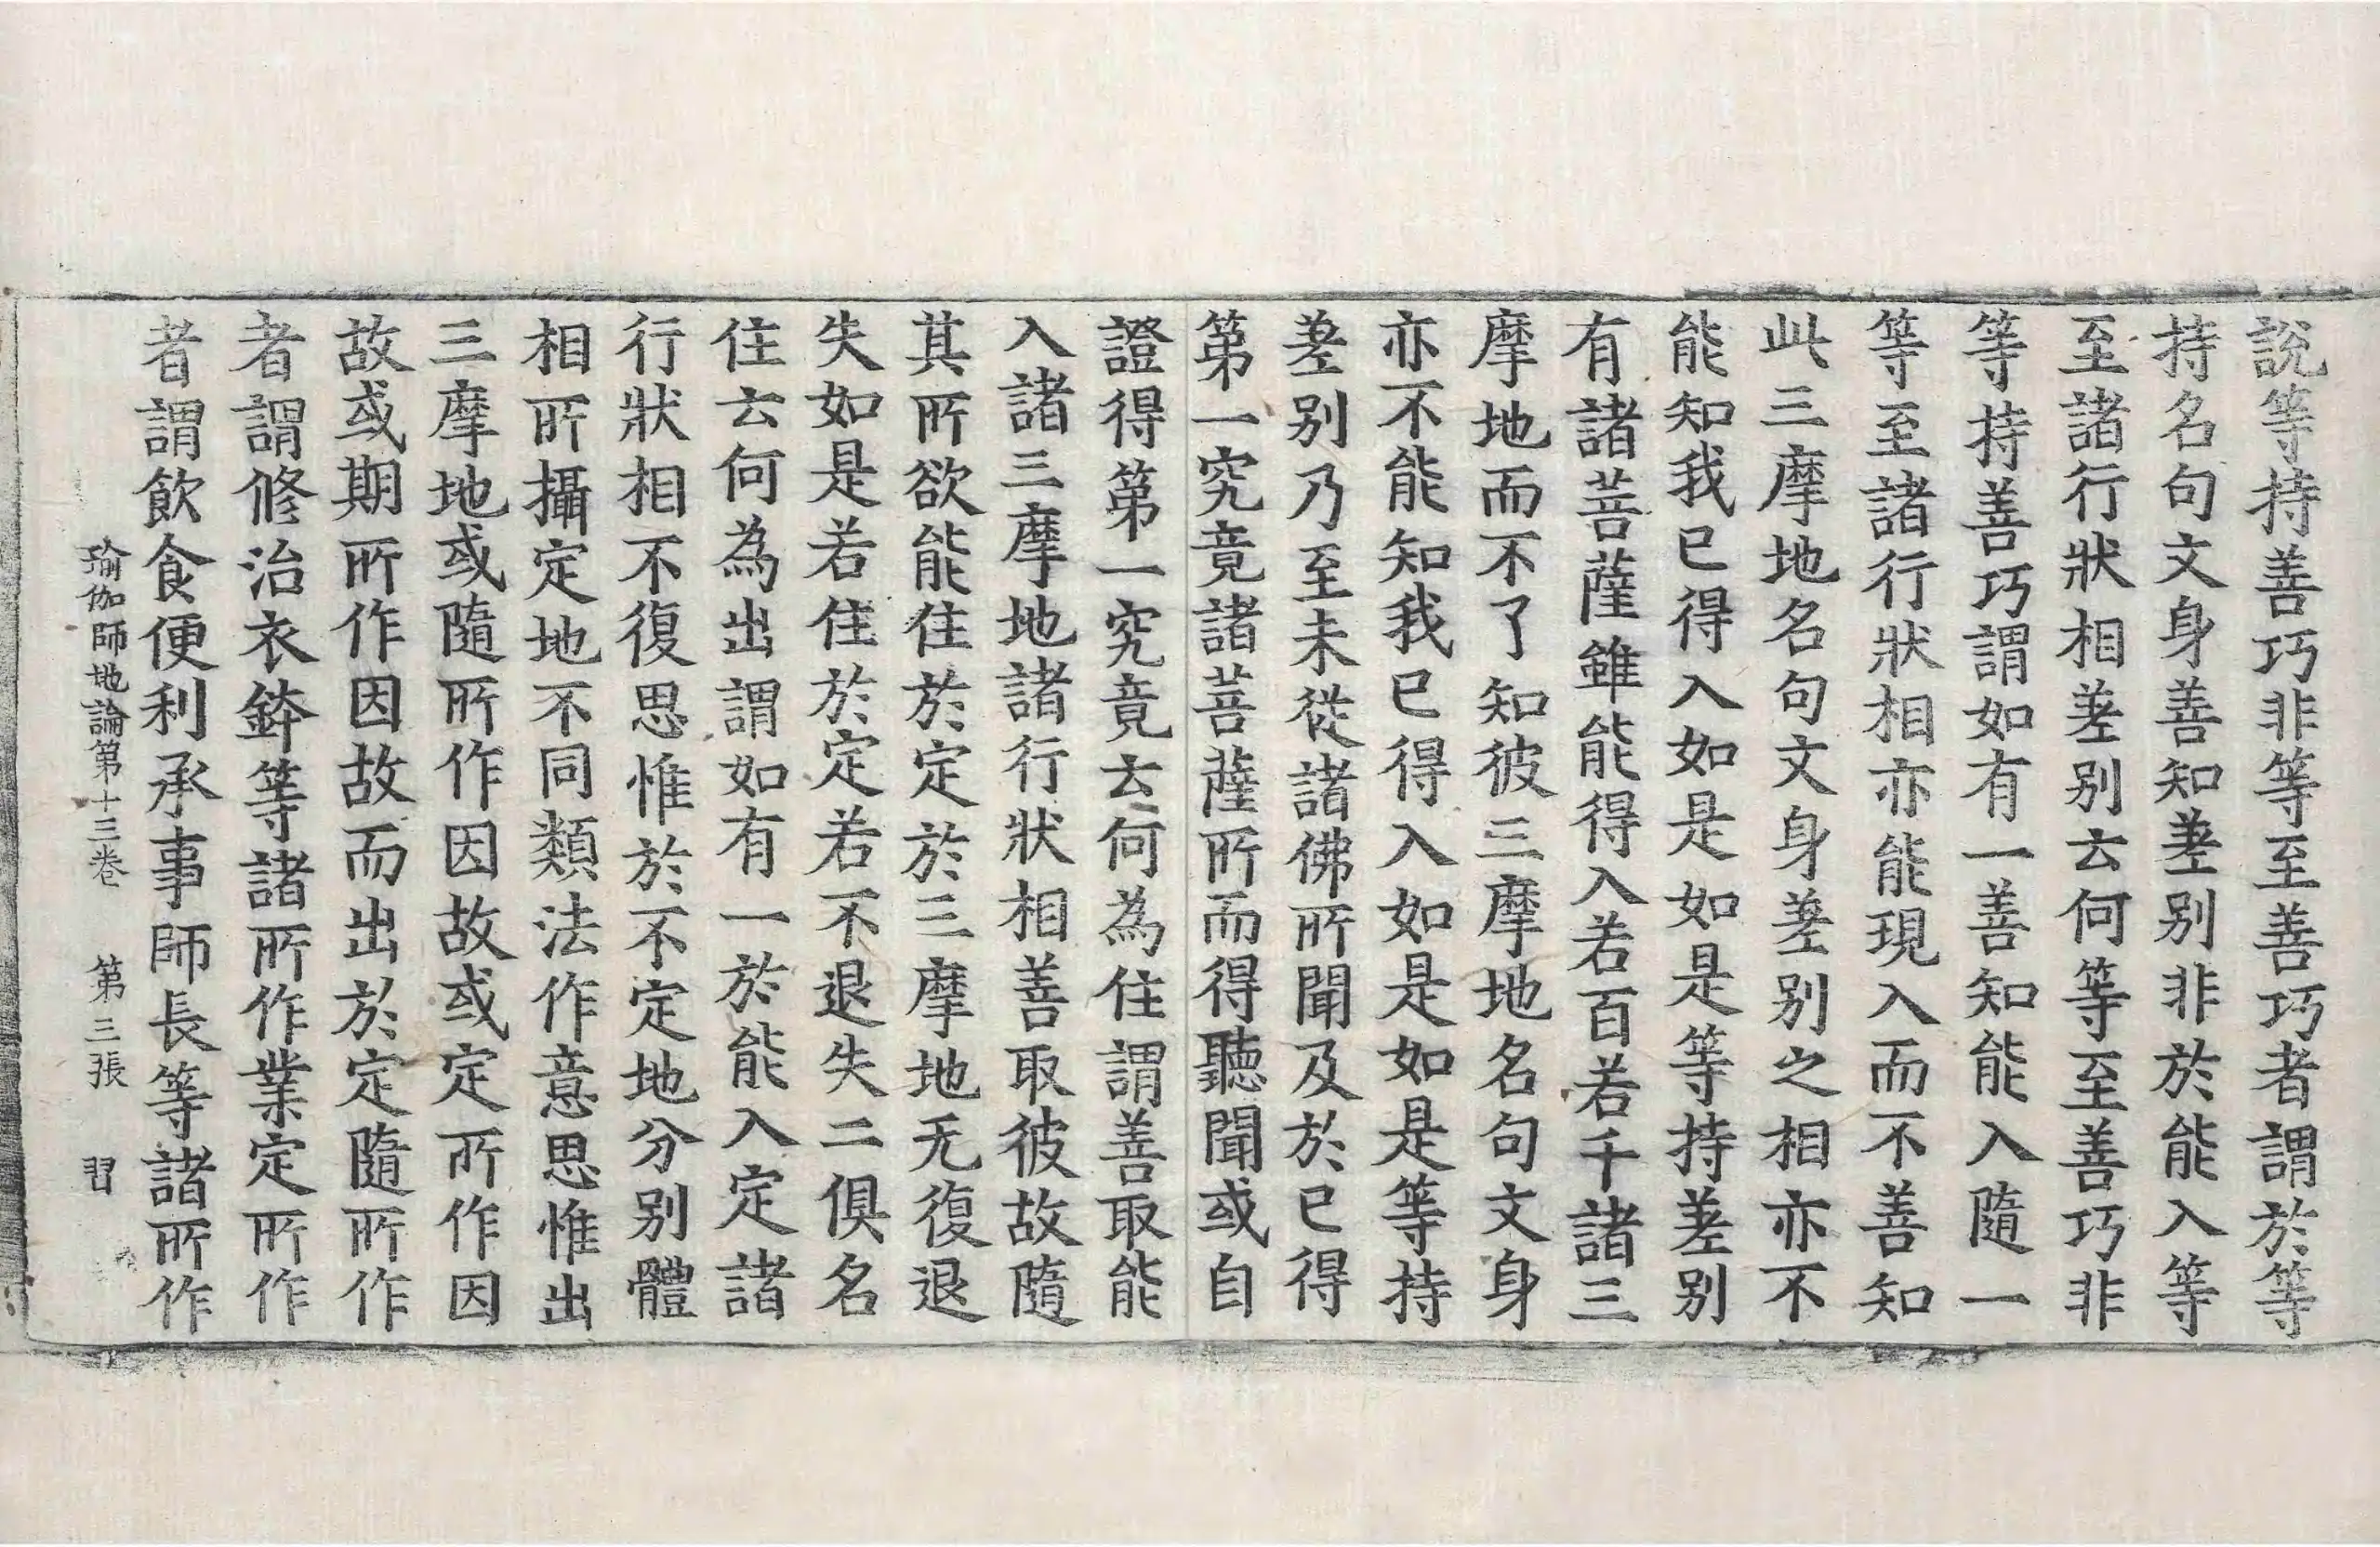 說等持善巧非等至善巧者謂於等
持名句文身善知差别非於能入等
至諸行狀相差别云何等至善巧非
等持善巧謂如有一善知能入隨一
等至諸行狀相亦能現入而不善知
此三摩地名句文身差别之相亦不
能知我已得入如是如是等持差别
有諸菩薩雖能得入若百若千諸三
摩地而不了知彼三摩地名句文身
亦不能知我已得入如是如是等持
差别乃至未從諸佛所聞及於已得
第一究竟諸菩薩所而得聽聞或自
證得第一究竟云何為住謂善取能
入諸三摩地諸行狀相善取彼故隨
其所欲能住於定於三摩地无復退
失如是若住於定若不退失二俱名
住云何為出謂如有一於能入定諸
行狀相不復思惟於不定地分别體
相所攝定地不同類法作意思惟出
三摩地或隨所作因故或定所作因
故或期所作因故而出於定隨所作
者謂修治衣鉢等諸所作業定所作
者謂飲食便利承事師長等諸所作
瑜伽師地論第十三卷 第三張 習